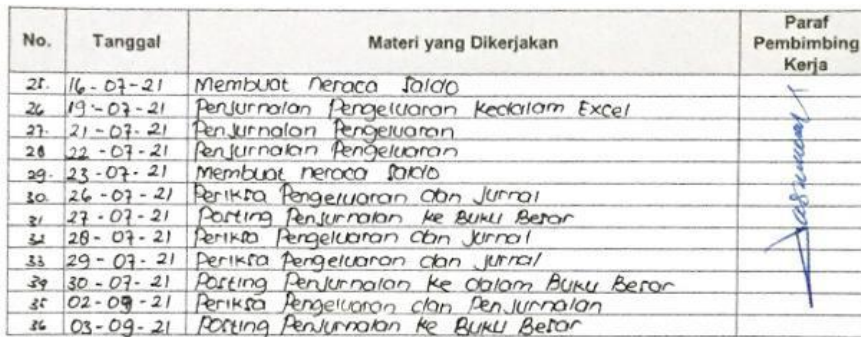 No. Tanggal Materi yang Dikerjakan Paraf Pembimbing Kerja
25. 16-07-21 Membuat neraca saldo
26 19-07-21 Penjurnalan Pengeluaran kedalam Excel
27. 21-07-21 Penjurnalan Pengeluaran
28 22-07-21 Penjurnalan Pengeluaran
29. 23-07-21 Membuat neraca saldo
30. 26-07-21 Periksa Pengeluaran dan Jurnal
31 27-07-21 Posting Penjurnalan ke Buku Besar
32 28-07-21 Periksa Pengeluaran dan Jurnal
33 29-07-21 Periksa Pengeluaran dan Jurnal
34 30-07-21 Posting Penjurnalan ke dalam Buku Besar
35 02-09-21 Periksa Pengeluaran dan Penjurnalan
36 03-09-21 Posting Penjurnalan ke Buku Besar